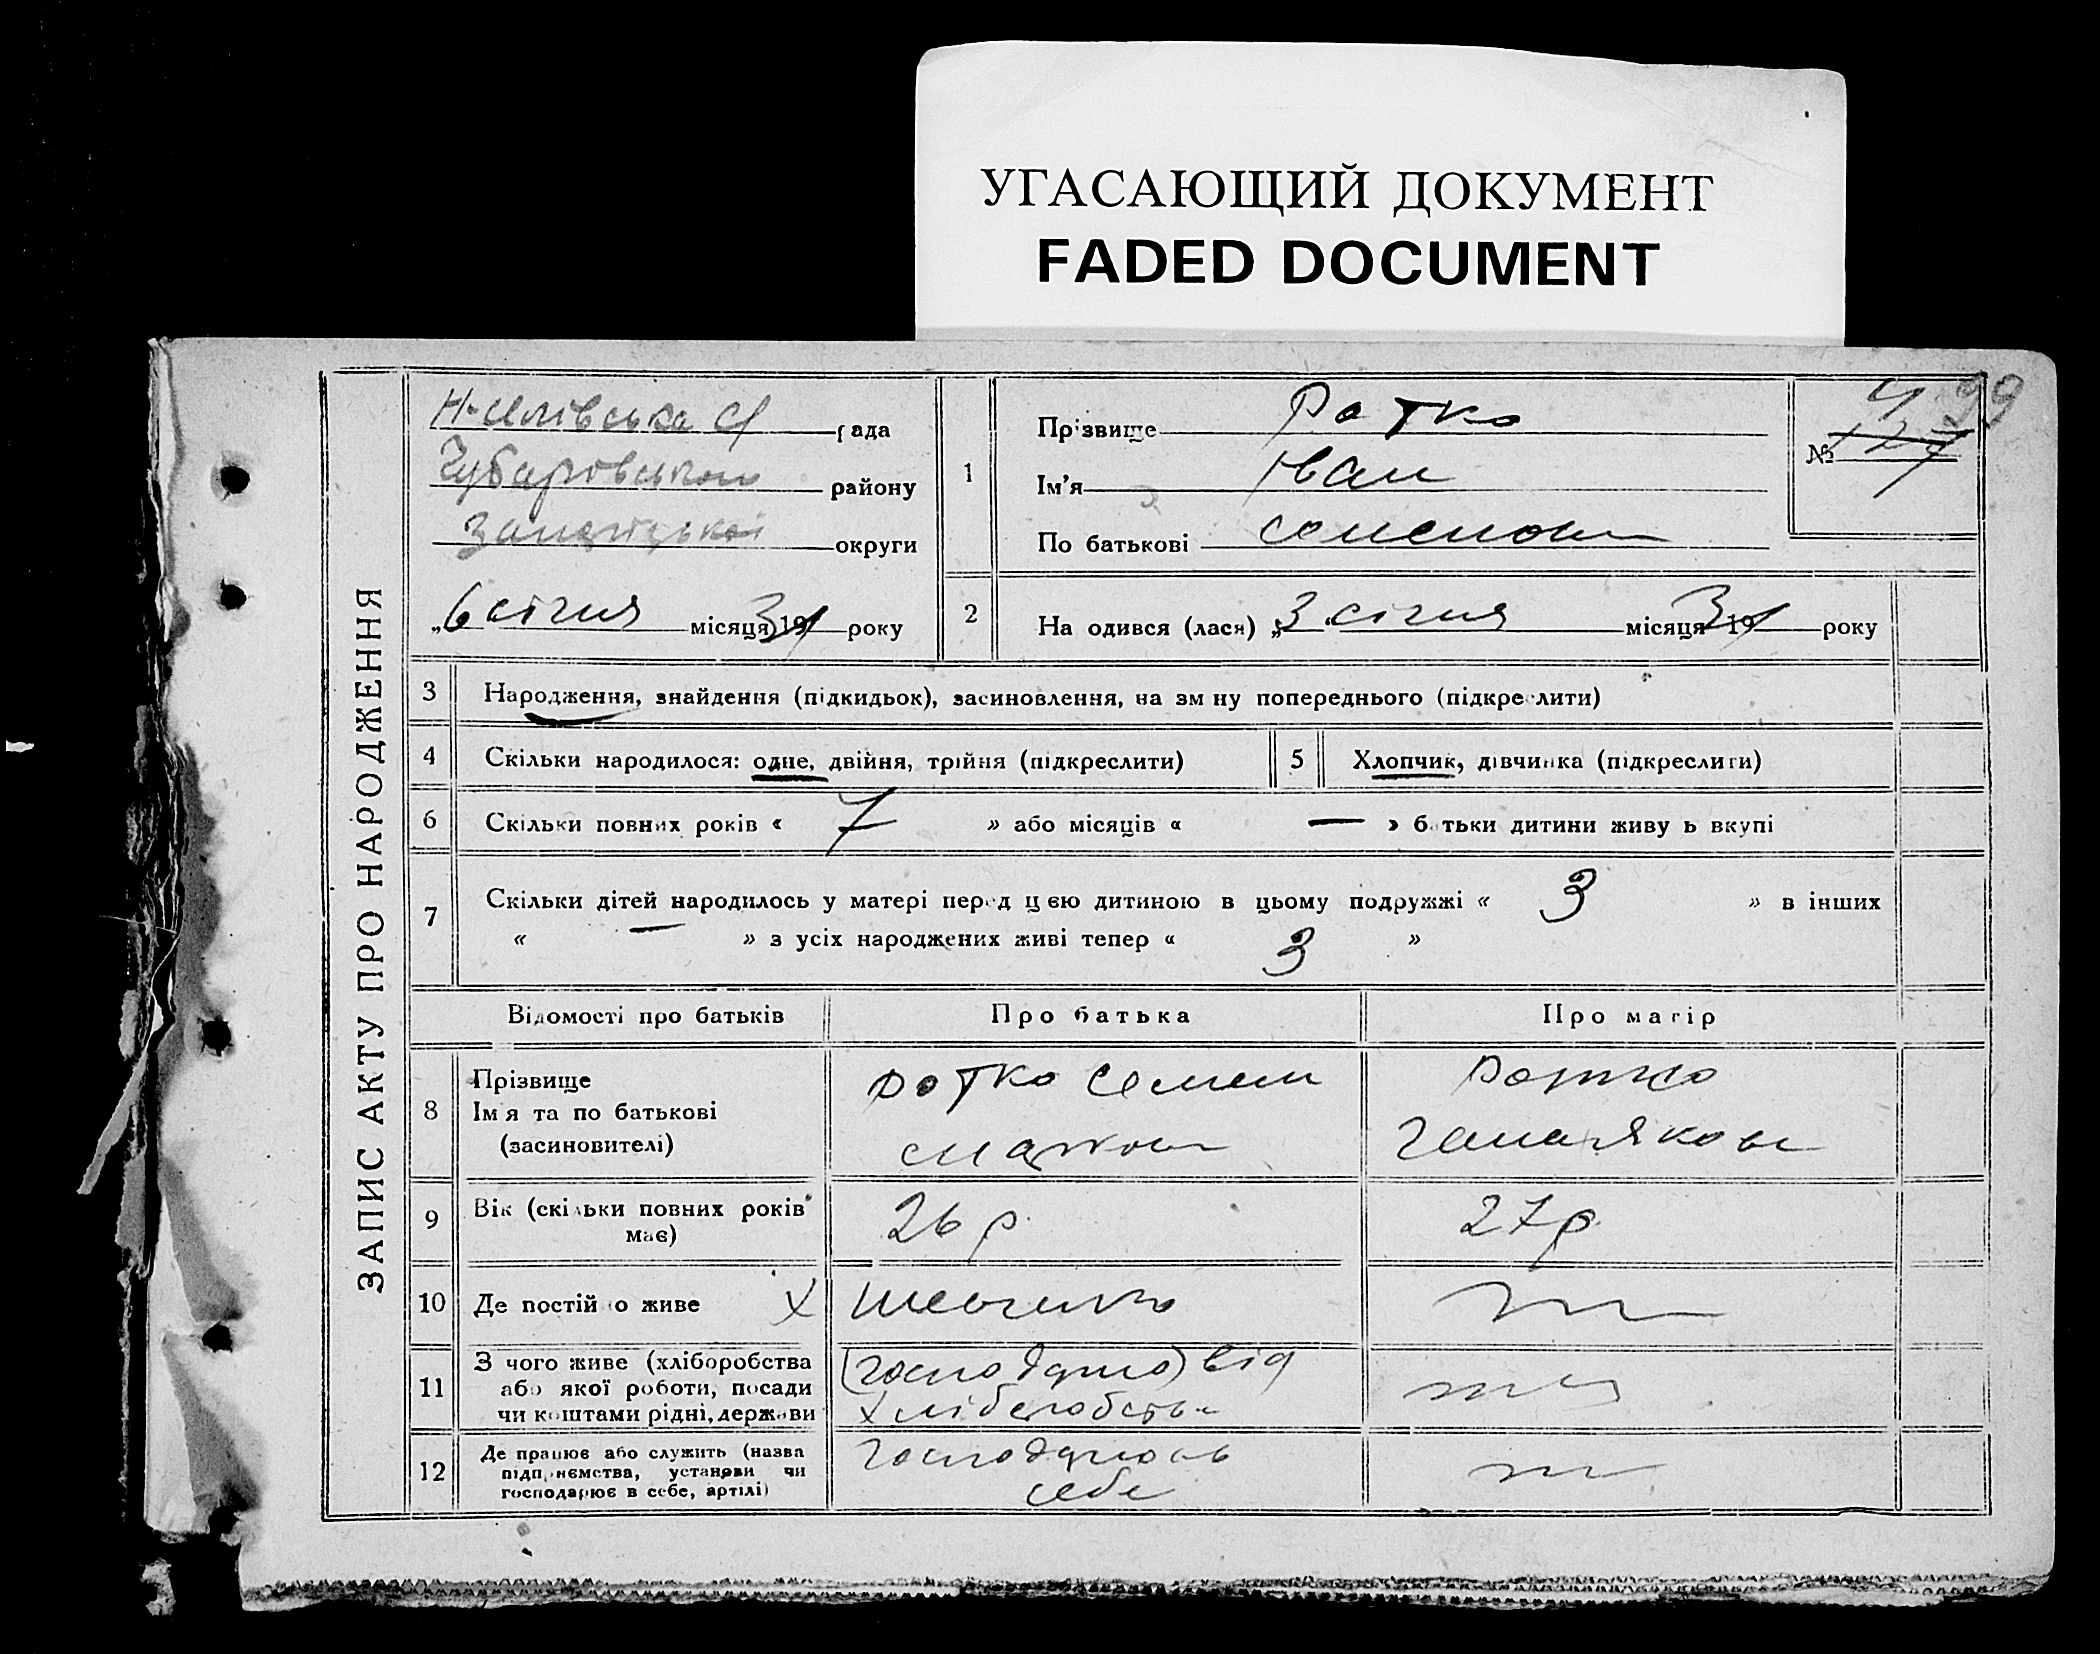 УГАСАЮЩИЙ ДОКУМЕНТ
FADED DOCUMENT
ЗАПИС АКТУ ПРО НАРОДЖЕННЯ
рада
району
округи
„6 січня місяця 1931 року
99
4
№ 127
1
Прізвище Ротко
Ім'я Іван
По батькові Семенов
2
На одився (лася) „3 січня місяця 1931 року
3 Народження, знайдення (підкидьок), засиновлення, на зм ну попереднього (підкре лити)
4 Скільки народилося: одне, двійня, трійня (підкреслити)
5 Хлопчик, дівчинка (підкреслити)
6 Скільки повних років « 7 » або місяців « — » б тьки дитини живу ь вкупі
7 Скільки дітей народилось у матері перед цією дитиною в цьому подружжі « 3 » в інших
« — » з усіх народжених живі тепер « 3 »
Відомості про батьків Про батька Про матір
8 Прізвище
Ім я та по батькові
(засиновителі)
Ротко Семен
Ротко
9 Вік (скільки повних років
має)
26 р. 27 р.
10 Де постій о живе X Шевченко
11 З чого живе (хліборобства
або якої роботи, посади
чи коштами рідні, держави
(господарство) від
хліборобства
12 Де працює або служить (назва
підприємства, установи чи
господарює в себе, артілі)
себе